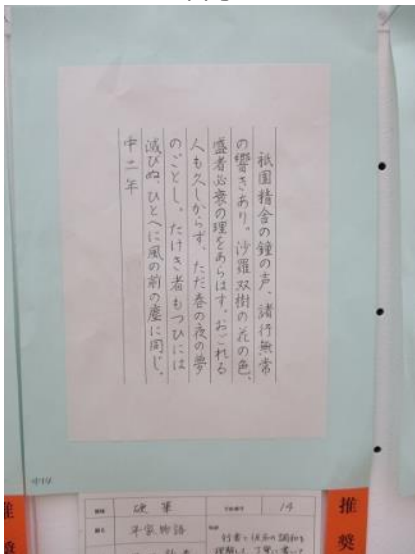 祇園精舎の鐘の声、諸行無常
の響きあり。沙羅双樹の花の色、
盛者必衰の理をあらはす。おごれる
人も久しからず、ただ春の夜の夢
のごとし。たけき者もつひには
滅びぬ、ひとへに風の前の塵に同じ。
中二年
中14
硬筆
14
平家物語
行書と仮名の調和を
理解し、丁寧に書いて
推奨
推奨